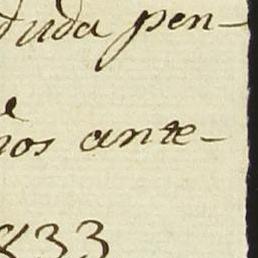 duda pen-
nos ante-
833